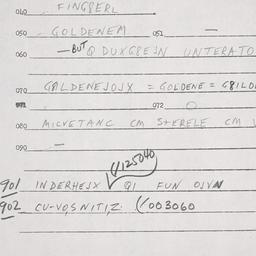 040 FINGBERL
050 GOLDENEM 051 —
060 —BUT Q DUXGBEJN UNTERATO
070 GOLDENEJOJX = GOLDENE = GBILD
071 072
080 MILVETANC CM STERELE CM V
090 —
(/125040
901 INDERHEJX QI FUN OJVN
902 CU-VOSNITIZ. (/003060